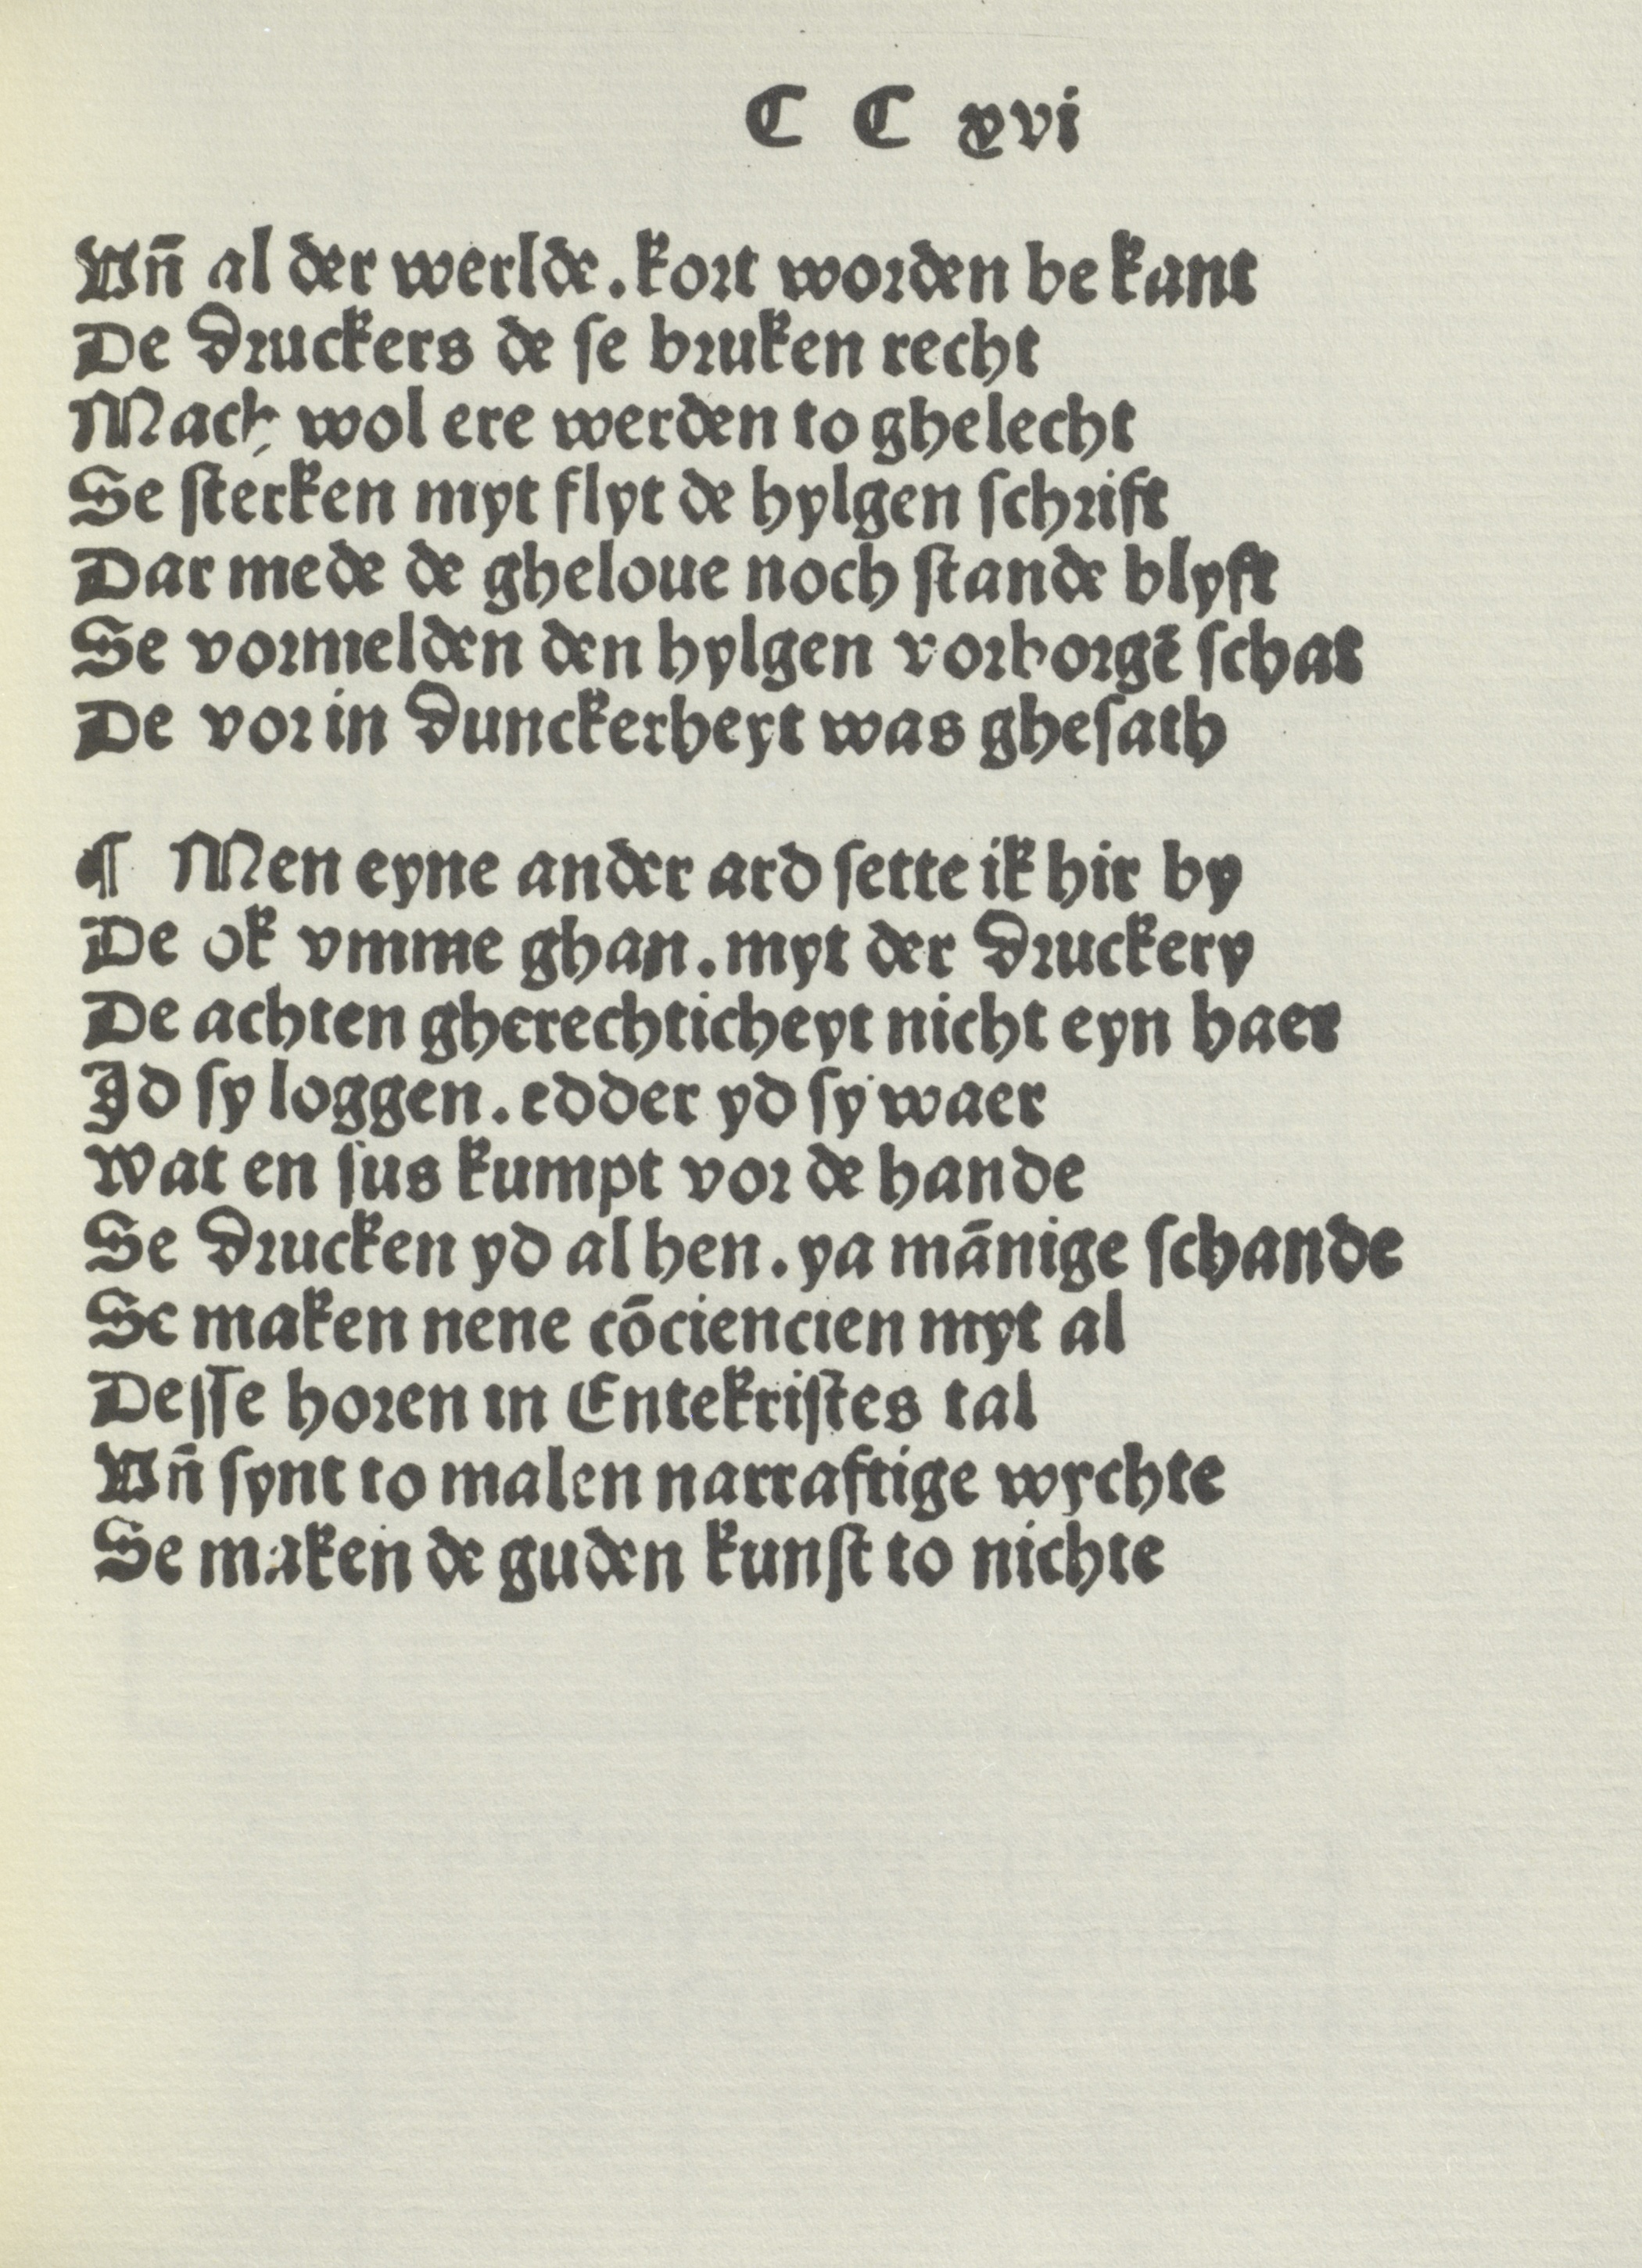 C C xvi
Vn̄ al der werlde. kort worden be kant
De druckers de ſe bruken recht
Mach wol ere werden to ghelecht
Se ſterken myt flyt de hylgen ſchrift
Dar mede de gheloue noch ſtande blyft
Se vormelden den hylgen vorborgē ſchat
De vor in dunckerheyt was gheſath
¶ Men eyne ander ard ſette ik hir by
De ok vmme ghan. myt der druckery
De achten gherechticheyt nicht eyn haer
Id ſy loggen. edder yd ſy waer
Wat en ſus kumpt vor de hande
Se drucken yd al hen. ya mānige ſchande
Se maken nene cōciencien myt al
Deſſe horen in Entekriſtes tal
Vn̄ ſynt to malen narraftige wychte
Se maken de guden kunſt to nichte